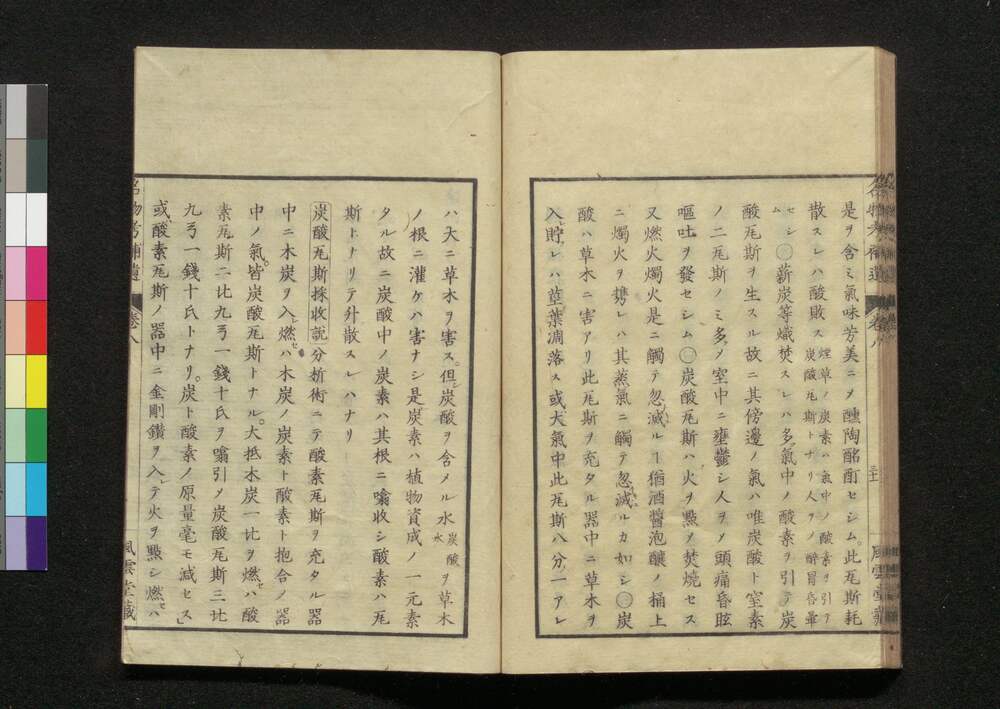 是ヲ含ミ氣味芳美ニ〆醺陶酩酊セシム此瓦斯耗
散スレハ酸敗ス煙草ノ炭素ハ氣中ノ酸素ヲ引テ
炭酸瓦斯トナリ人ヲ〆醉冒昏暈
セシム○薪炭等熾焚スレハ多ク氣中ノ酸素ヲ引テ炭
酸瓦斯ヲ生スル故ニ其傍邊ノ氣ハ唯炭酸ト窒素
ノ二瓦斯ノミ多〆室中ニ壅鬱シ人ヲ〆頭痛昏眩
嘔吐ヲ發セシム○炭酸瓦斯ハ火ヲ㸃〆焚燒セス
又燃火燭火是ニ觸テ忽滅ル丨猶酒醬泡釀ノ桶上
ニ燭火ヲ携レハ其蒸氣ニ觸テ忽滅ルカ如シ○炭
酸ハ草木ニ害アリ此瓦斯ヲ充タル器中ニ草木ヲ
入貯レハ莖葉凋落ス或大氣中此瓦斯八分一アレ
名物考補遺 卷八 風雲堂藏
ハ大ニ草木ヲ害ス但シ炭酸ヲ含メル水炭酸水ヲ草木
ノ根ニ灌ケハ害ナシ是炭素ハ植物資成ノ一元素
タル故ニ炭酸中ノ炭素ハ其根ニ噏收シ酸素ハ瓦
斯トナリテ升散スレハナリ
炭酸瓦斯採收説 分析術ニテ酸素瓦斯ヲ充タル器
中ニ木炭ヲ入燃セハ木炭ノ炭素ト酸素ト抱合〆器
中ノ氣皆炭酸瓦斯トナル大抵木炭一比ヲ燃セハ酸
素瓦斯二比九丐一錢十氏ヲ噏引〆炭酸瓦斯三比
九丐一錢十氏トナリ炭ト酸素ノ原量毫モ減セス
或ハ酸素瓦斯ノ器中ニ金剛鑽ヲ入レテ火ヲ㸃シ燃セハ
名物考補遺 卷八 風雲堂藏